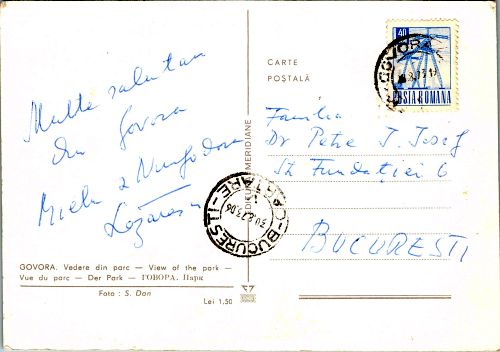 Multe salutari
din Govora
CARTE
POȘTALĂ
40
GOVORA
POSTA ROMANA
Familia
Dr Petre I. Iosif
St Fundației 6
BUCUREȘTI
MERIDIANE
CARTARE
BUCUREȘTI
GOVORA. Vedere din parc — View of the park —
Vue du parc — Der Park — ГОВОРА. Парк
Foto : S. Dan
Lei 1,50